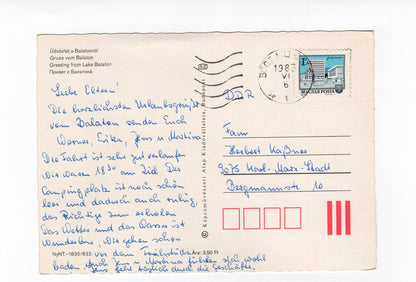 Üdvözlet a Balatonról
Gruss vom Balaton
Greeting from Lake Balaton
Привет с Балатона
Liebe Eltern!
Die herzlichsten Urlaubsgrüße
vom Balaton senden Euch
Werner, Erika, Jens u. Martina
Die Fahrt ist sehr gut verlaufen
Wir waren 18³⁰ am Ziel. Der
Campingplatz ist noch schön
leer und dadurch auch ruhig,
das Richtige zum erholen
Das Wetter und das Wasser ist
wunderbar, wir gehen schon
vor dem Frühstück
baden. Auch Jens u. Martina fühlen sich wohl
Jens geht täglich durch die Geschäfte.
NyNT.-1830/832. Ára: 3,50 Ft
© Képzőművészeti Alap Kiadóvállalata, Budapest
1983
VI
6
MAGYAR POSTA
DDR
Fam
Herbert Kaßner
9075 Karl-Marx-Stadt
Bergmannstr. 10